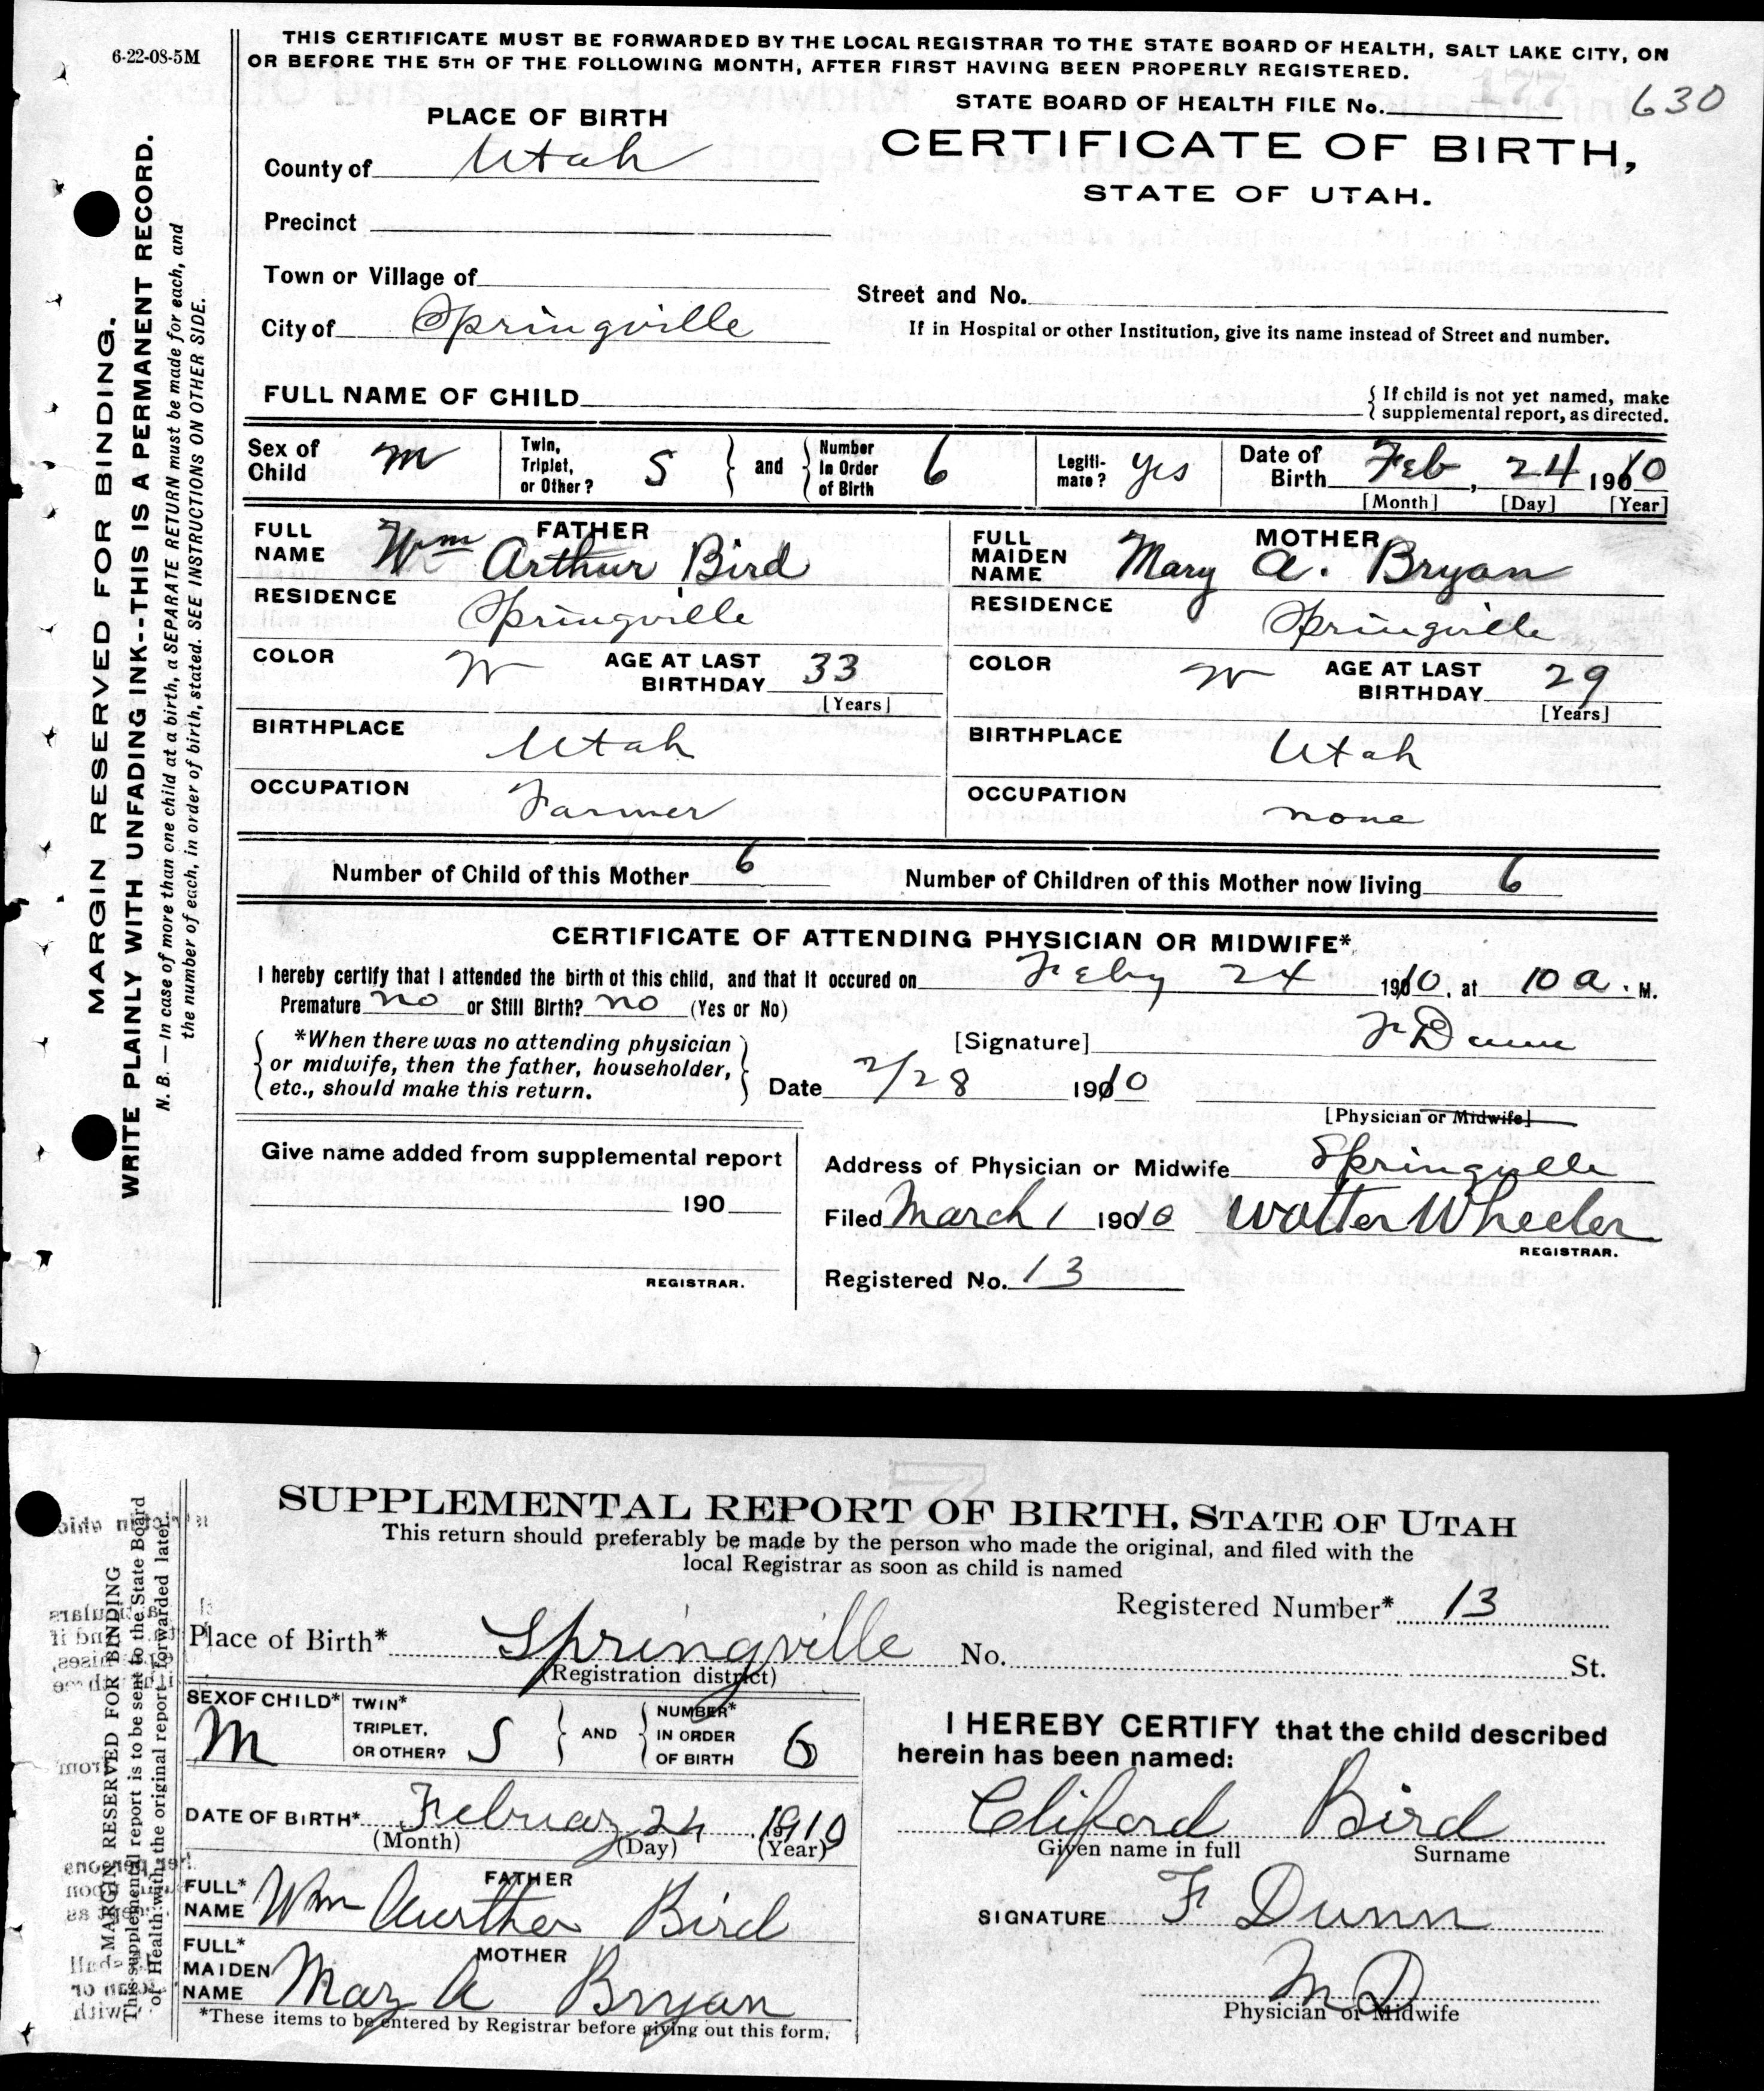 6-22-08-5M
THIS CERTIFICATE MUST BE FORWARDED BY THE LOCAL REGISTRAR TO THE STATE BOARD OF HEALTH, SALT LAKE CITY, ON
OR BEFORE THE 5TH OF THE FOLLOWING MONTH, AFTER FIRST HAVING BEEN PROPERLY REGISTERED.
STATE BOARD OF HEALTH FILE No. 177 630
PLACE OF BIRTH
CERTIFICATE OF BIRTH,
STATE OF UTAH.
County of Utah
Precinct
Town or Village of
Street and No.
City of Springville
If in Hospital or other Institution, give its name instead of Street and number.
FULL NAME OF CHILD
{ If child is not yet named, make
supplemental report, as directed.
Sex of Child M
Twin, Triplet, or Other? S } and { Number In Order of Birth 6
Legiti-mate? Yes
Date of Birth Feb, 24 1910
[Month] [Day] [Year]
FATHER
FULL NAME Wm Arthur Bird
MOTHER
FULL MAIDEN NAME Mary A. Bryan
RESIDENCE Springville
RESIDENCE Springville
COLOR W AGE AT LAST BIRTHDAY 33
[Years]
COLOR W AGE AT LAST BIRTHDAY 29
[Years]
BIRTHPLACE Utah
BIRTHPLACE Utah
OCCUPATION Farmer
OCCUPATION none
Number of Child of this Mother 6 Number of Children of this Mother now living 6
CERTIFICATE OF ATTENDING PHYSICIAN OR MIDWIFE*
I hereby certify that I attended the birth of this child, and that it occured on Feby 24 1910, at 10 a. M.
Premature no or Still Birth? no (Yes or No)
*When there was no attending physician
or midwife, then the father, householder,
etc., should make this return.
[Signature] F Dunn
Date 2/28 1910
[Physician or Midwife]
Give name added from supplemental report
190
REGISTRAR.
Address of Physician or Midwife Springville
Filed March 1 1910 Walter Wheeler
REGISTRAR.
Registered No. 13
MARGIN RESERVED FOR BINDING.
WRITE PLAINLY WITH UNFADING INK--THIS IS A PERMANENT RECORD.
N. B. — In case of more than one child at a birth, a SEPARATE RETURN must be made for each, and
the number of each, in order of birth, stated. SEE INSTRUCTIONS ON OTHER SIDE.
SUPPLEMENTAL REPORT OF BIRTH, STATE OF UTAH
This return should preferably be made by the person who made the original, and filed with the
local Registrar as soon as child is named
Registered Number* 13
Place of Birth* Springville No. St.
(Registration district)
SEX OF CHILD* M
TWIN* TRIPLET, OR OTHER? S } AND { NUMBER* IN ORDER OF BIRTH 6
I HEREBY CERTIFY that the child described
herein has been named:
DATE OF BIRTH* Februay 24 1910
(Month) (Day) (Year)
Cliford Bird
Given name in full Surname
FATHER
FULL* NAME Wm Aurther Bird
SIGNATURE F Dunn
MOTHER
FULL* MAIDEN NAME Mary A Bryan
M D
Physician or Midwife
*These items to be entered by Registrar before giving out this form.
MARGIN RESERVED FOR BINDING
This supplemental report is to be sent to the State Board
of Health with the original report forwarded later.